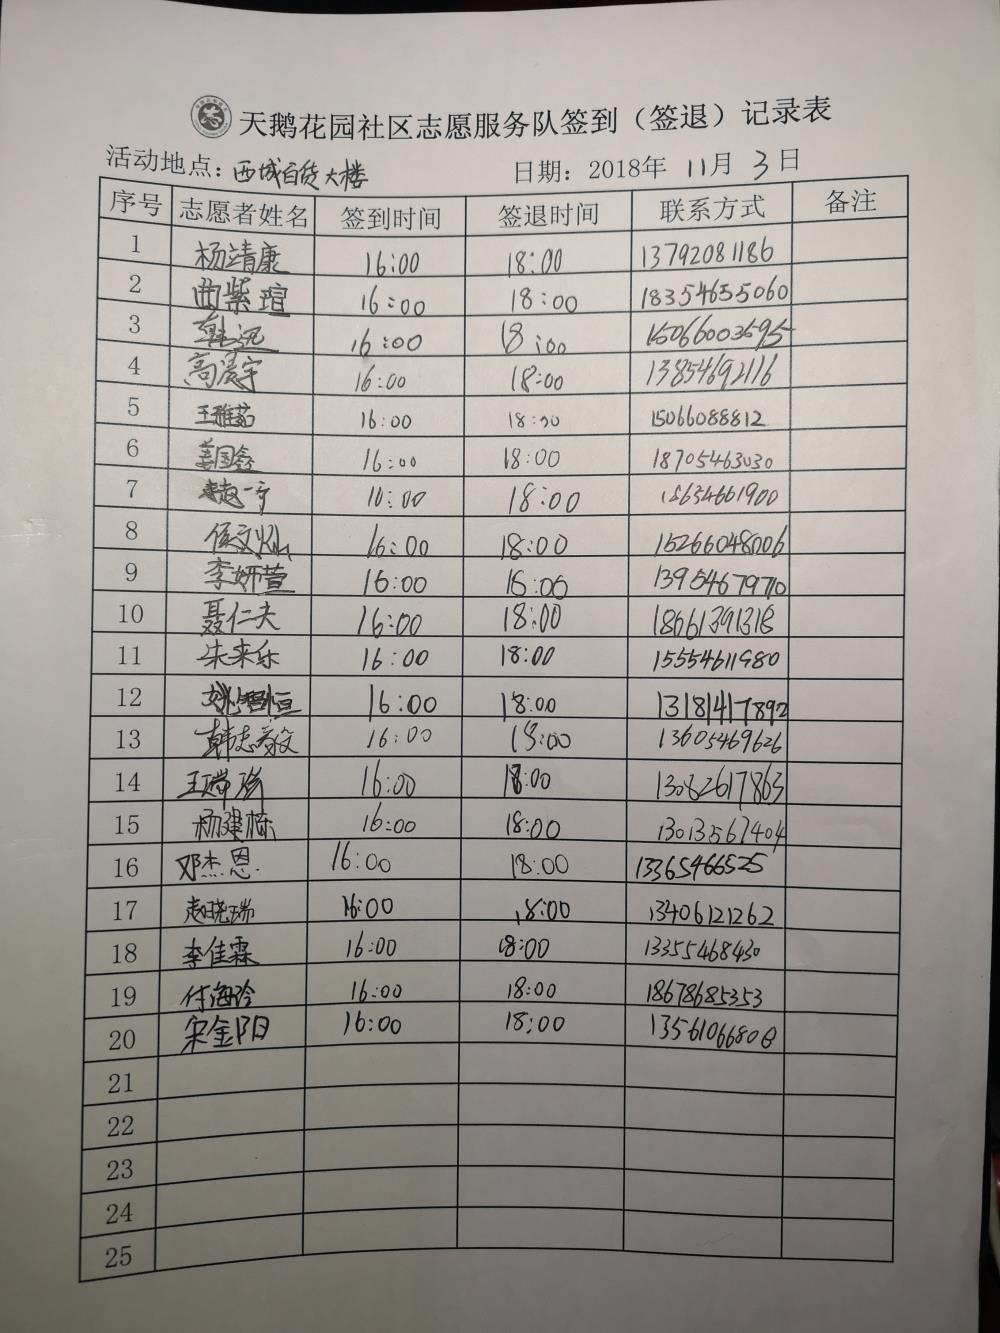 天鹅花园社区志愿服务队签到（签退）记录表
活动地点：西城百货大楼 日期：2018年 11月 3日
序号 志愿者姓名 签到时间 签退时间 联系方式 备注
1 杨靖康 16:00 18:00 13792081186
2 曲紫瑄 16:00 18:00 18354655060
3 16:00 18:00 15066003595
4 高晨宇 16:00 18:00 13854692116
5 王雅茹 16:00 18:00 15066088812
6 姜国鑫 16:00 18:00 18705463030
7 16:00 18:00 18654661900
8 16:00 18:00 15266048006
9 李妍萱 16:00 18:00 13954679710
10 聂仁夫 16:00 18:00 18661391318
11 朱来乐 16:00 18:00 15554611980
12 16:00 18:00 13181417892
13 韩志毅 16:00 18:00 13605469626
14 王瑞扬 16:00 18:00 13082617863
15 杨建栋 16:00 18:00 13013567404
16 邓杰恩 16:00 18:00 13365466525
17 赵晓瑞 16:00 18:00 13406121262
18 李佳霖 16:00 18:00 13355468430
19 付海玲 16:00 18:00 18678685353
20 宋金阳 16:00 18:00 13561066808
21
22
23
24
25